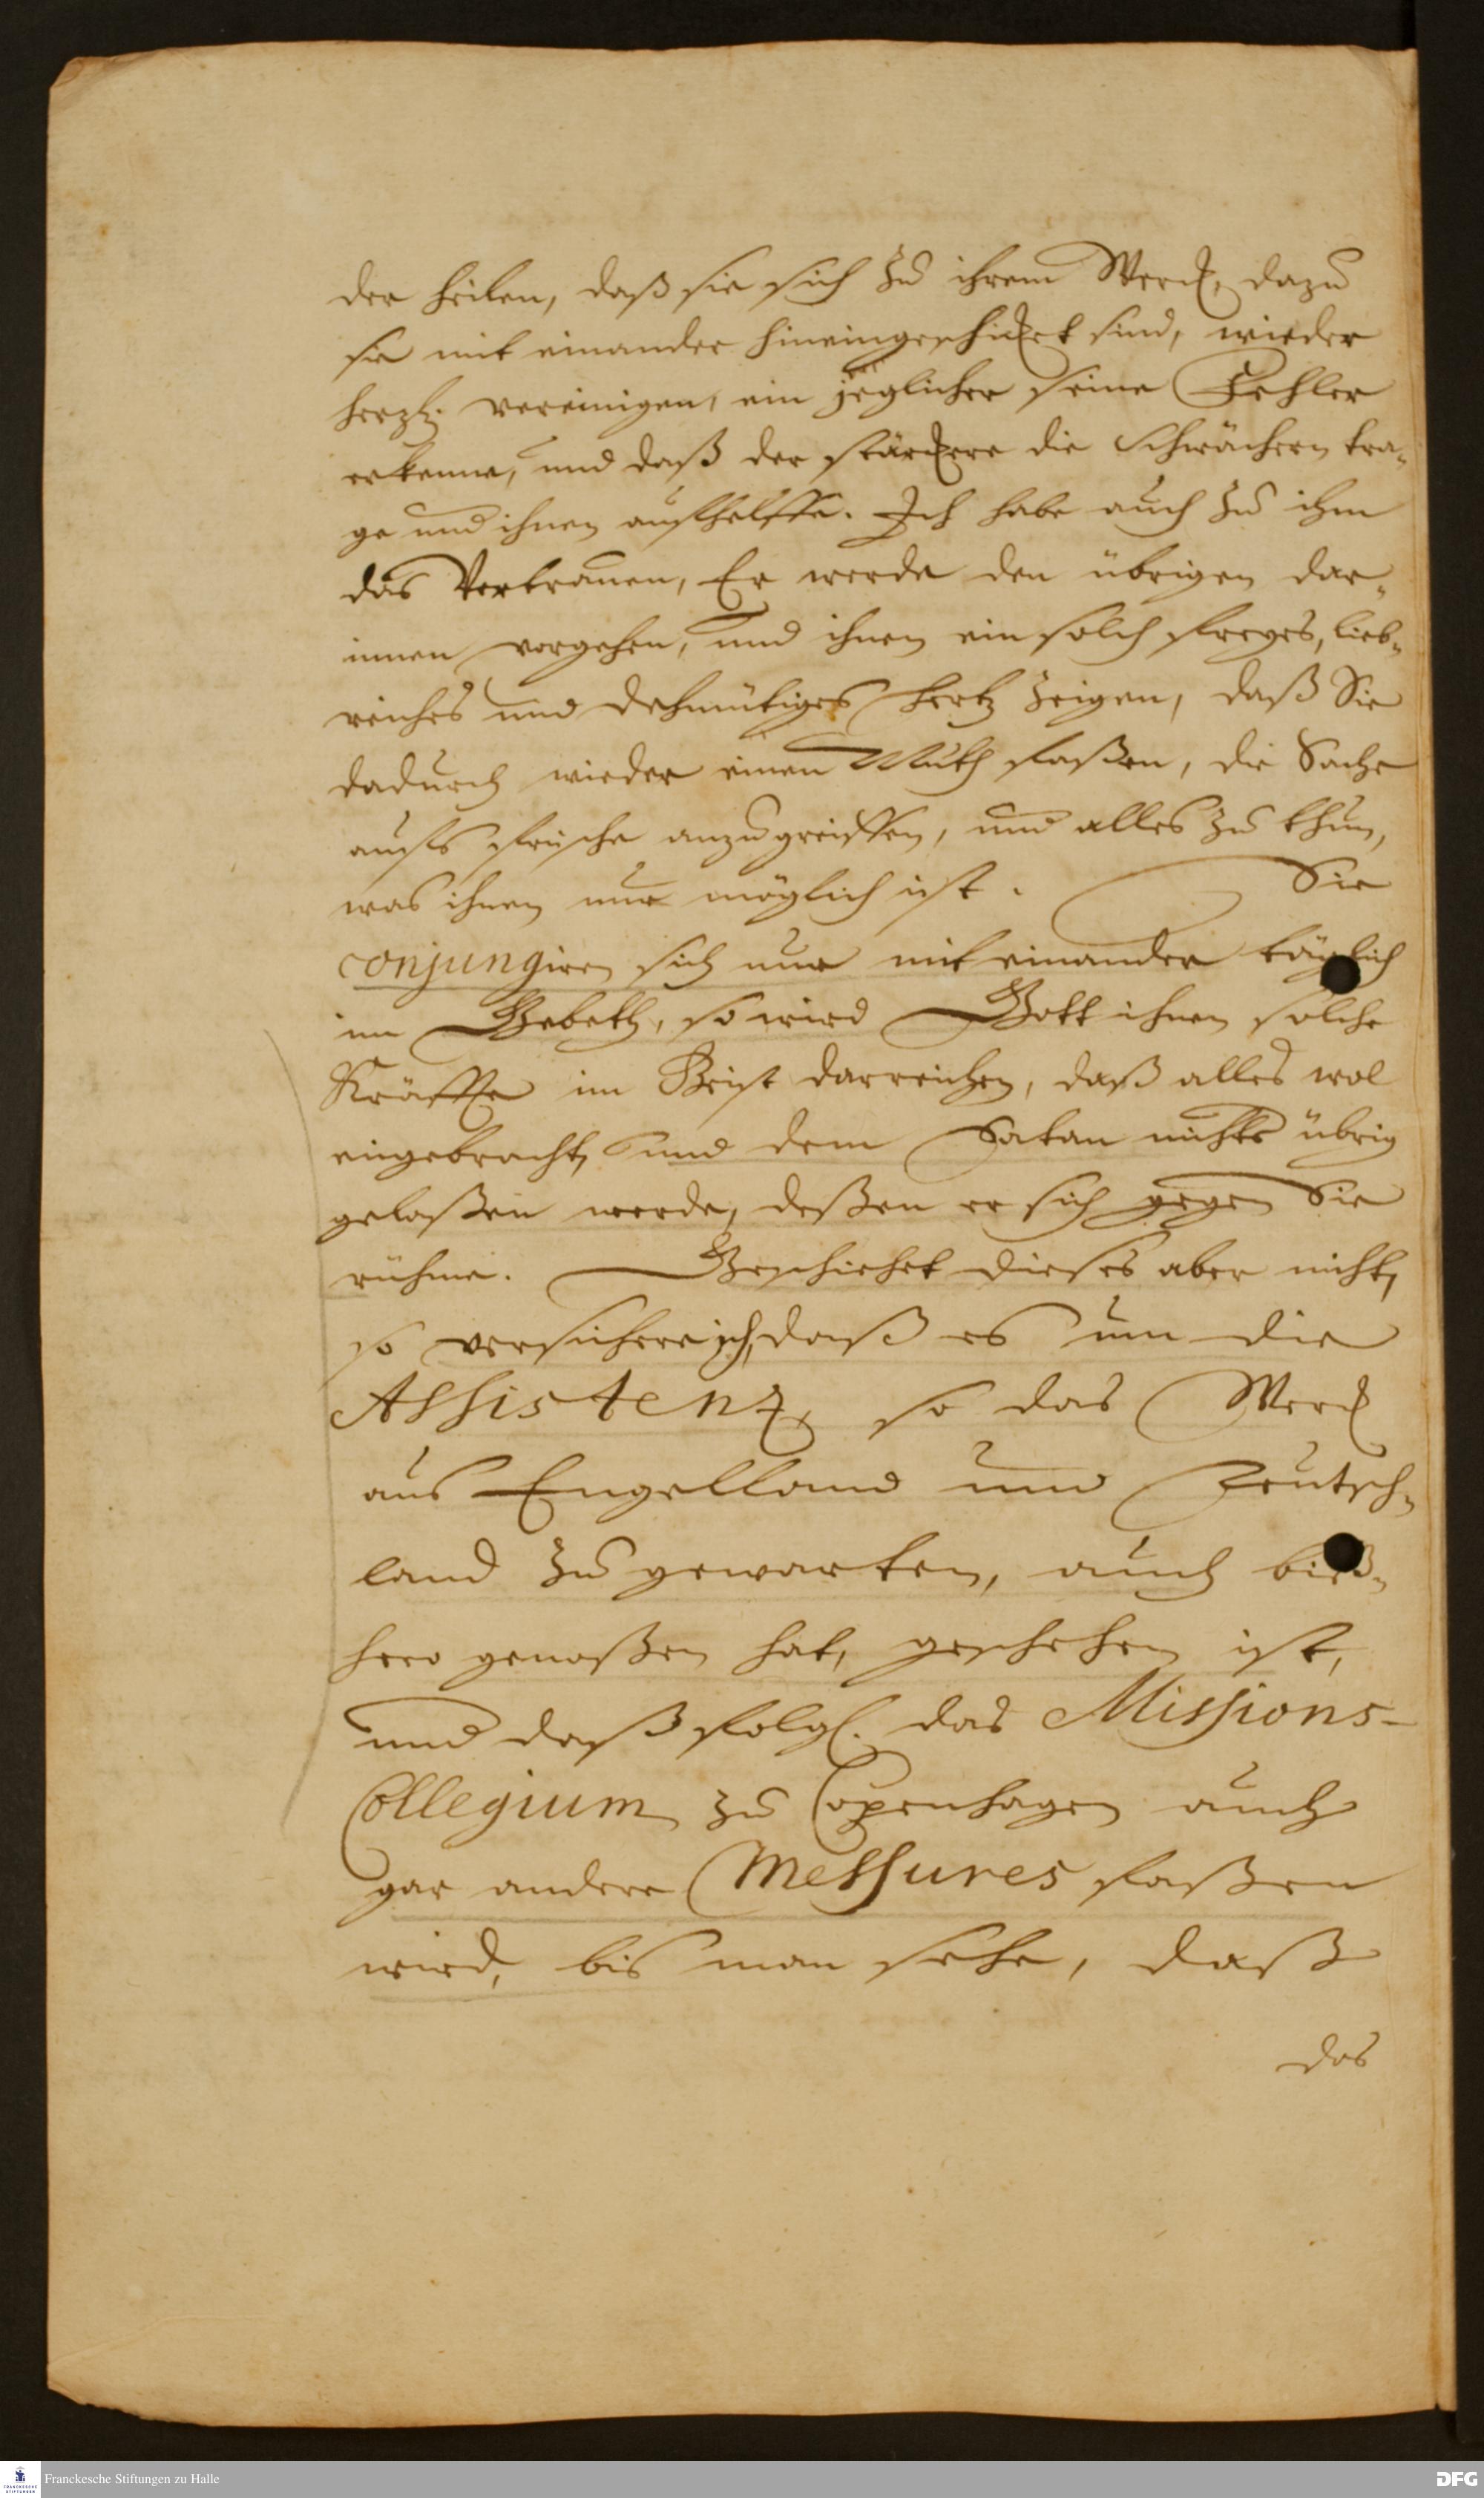 der heilen, daß sie sich zu ihrem Werck, dazu
sie mit einander hineingeschicket sind, wieder
hertzl. vereinigen, ein jeglicher seine Fehler
erkenne, und daß der stärckere die Schwächern tra-
ge und ihnen aufhelffe. Ich habe auch zu ihm
das Vertrauen, Er werde den übrigen dar-
innen vorgehen, und ihnen ein solch freyes, lieb-
reiches und dehmütiges Hertz zeigen, daß Sie
dadurch wieder einen Muth faßen, die Sache
aufs frische anzugreiffen, und alles zu thun,
was ihnen nur möglich ist. Sie
conjungiren sich nur mit einander täglich
im Gebeth, so wird Gott ihnen solche
Kräffte im Geist darreichen, daß alles wol
eingebracht, und dem Satan nichts übrig
gelaßen werde, deßen er sich gegen Sie
rühme. Geschiehet dieses aber nicht,
so versichere ich, daß es um die
Assistenz, so das Werck
aus Engelland und Teutsch-
land zu gewarten, auch biß-
hero genoßen hat, geschehen ist,
und daß folgl. das Missions-
Collegium zu Copenhagen auch
gar andere Messures faßen
wird, bis man sehe, daß
das
Franckesche Stiftungen zu Halle
DFG